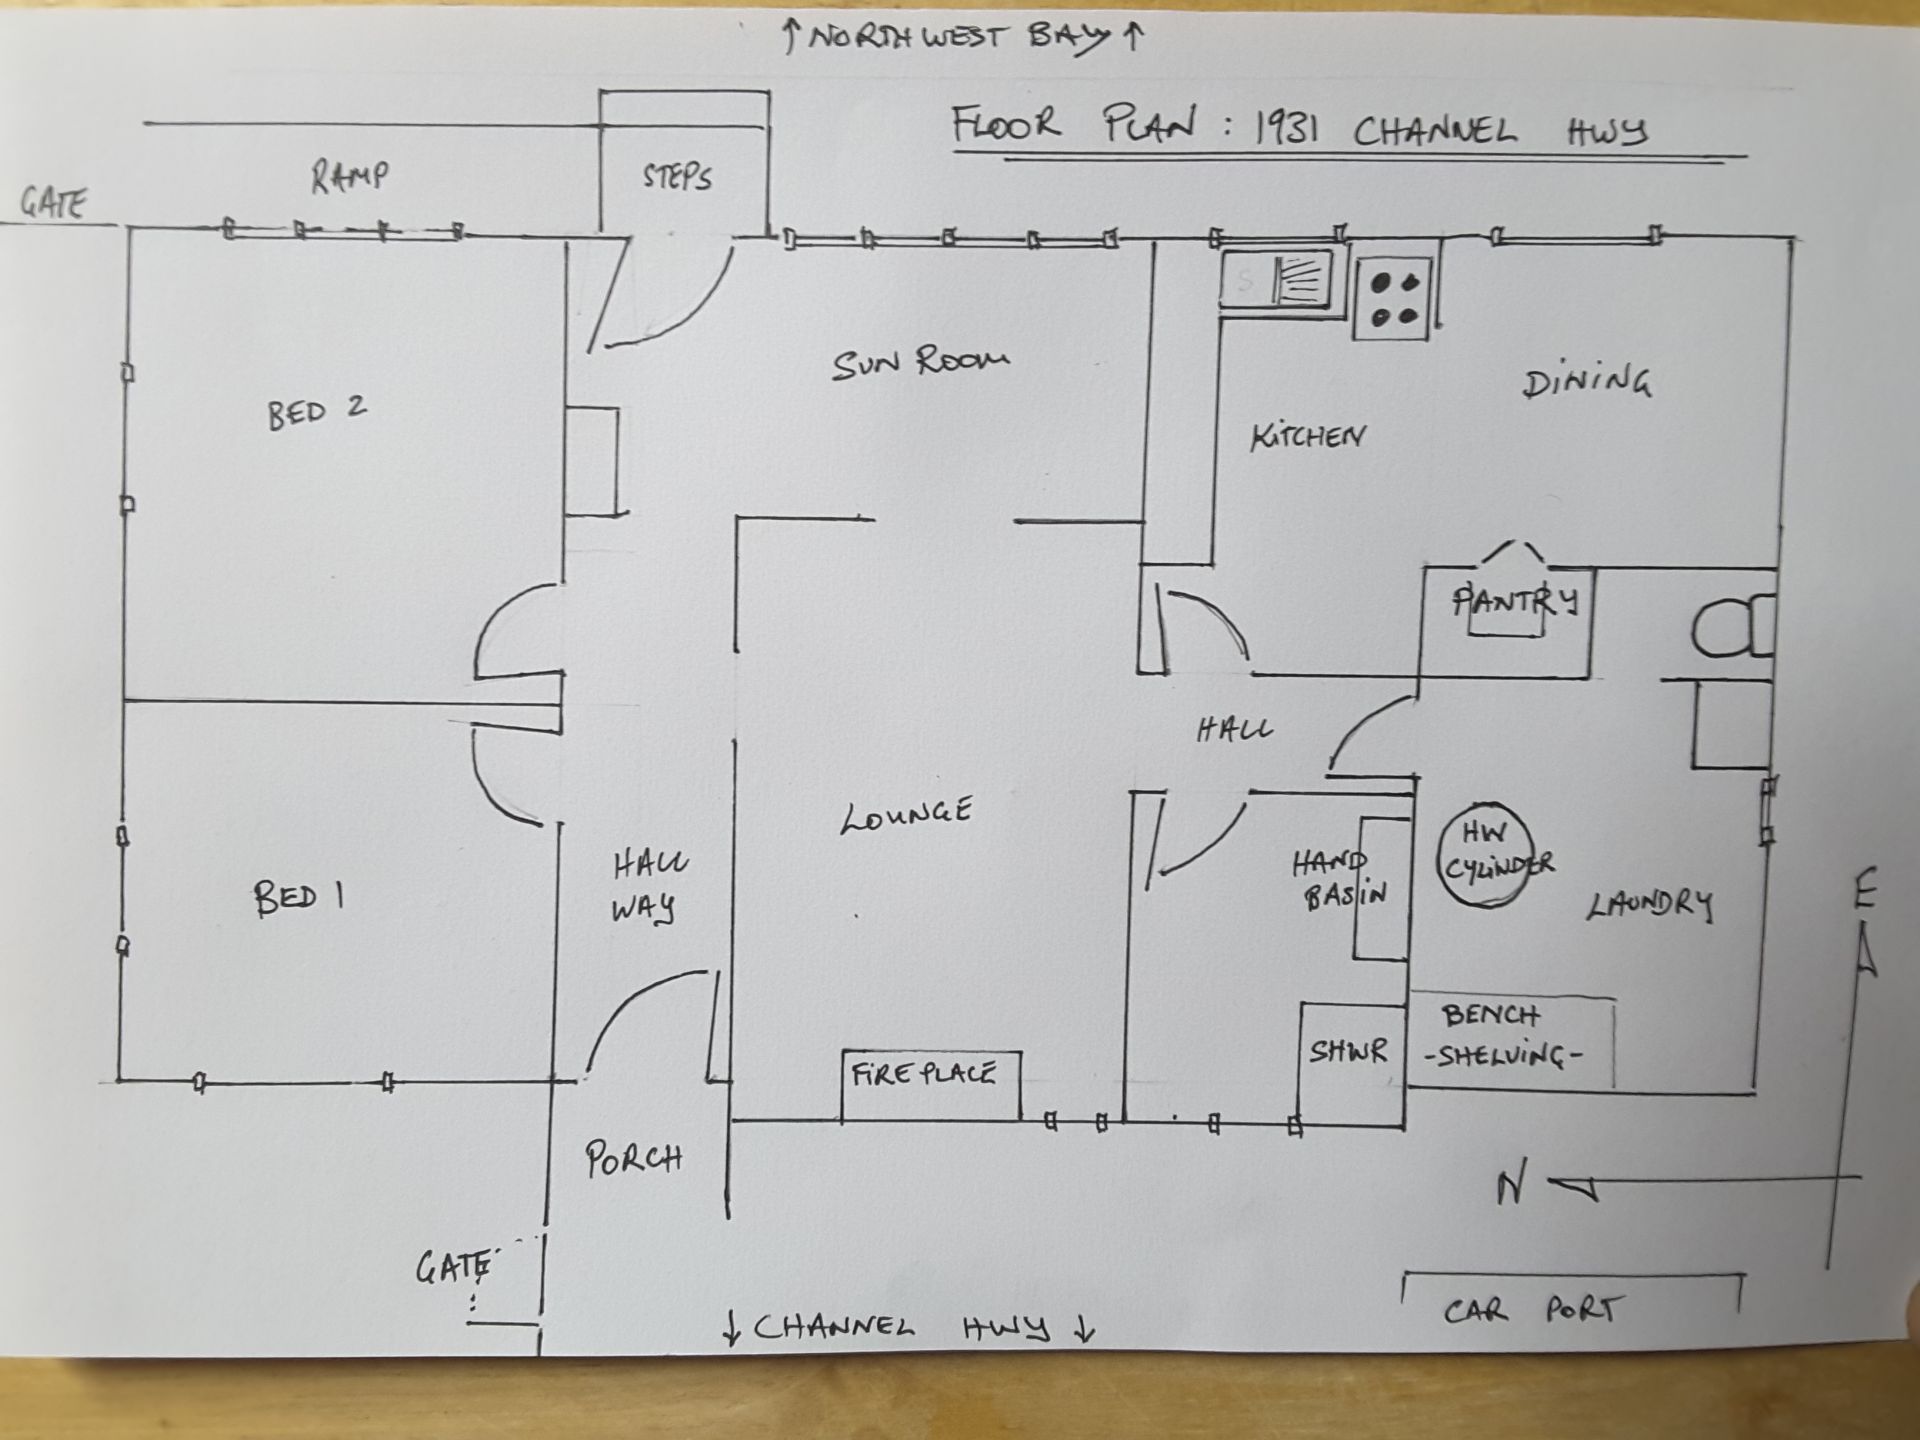 ↑ NORTH WEST BAY ↑
FLOOR PLAN : 1931 CHANNEL HWY
RAMP
STEPS
GATE
SUN ROOM
DINING
BED 2
KITCHEN
PANTRY
HALL
LOUNGE
HW
CYLINDER
HALL
WAY
HAND
BASIN
BED 1
LAUNDRY
E
BENCH
-SHELVING-
SHWR
FIRE PLACE
PORCH
N
GATE
CAR PORT
↓ CHANNEL HWY ↓